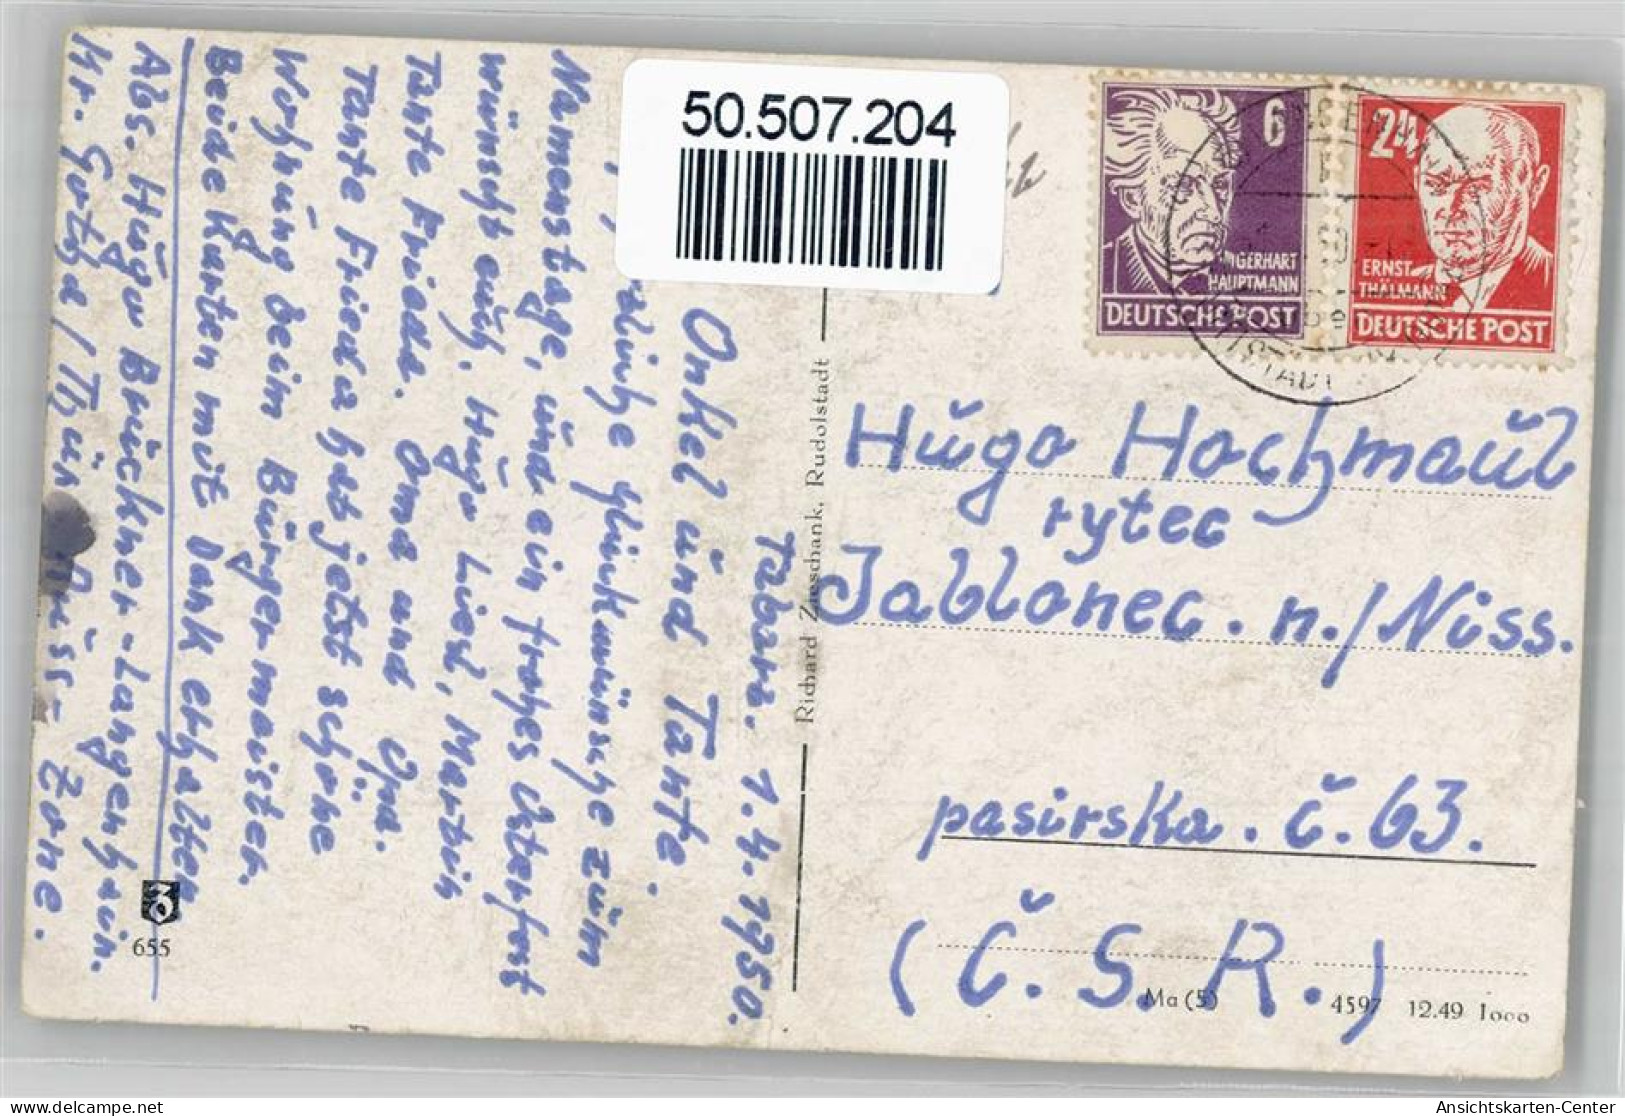 50.507.204
6
GERHART
HAUPTMANN
DEUTSCHE POST
24
ERNST
THÄLMANN
DEUTSCHE POST
Tabarz. 1.4.1950.
Onkel und Tante.
Glückwünsche zum
Namenstage, und ein frohes Osterfest
wünscht euch, Hugo Lied, Martin
Tante Frieda. Oma und Opa.
Tante Frieda hat jetzt schöne
Wohnung beim Bürgermaister.
Beide Karten mit Dank erhalten
Abs. Hugo Brückner-Langenhain.
Kr. Gotha/Thür. Rüss-Zone.
655
Richard Zieschank, Rudolstadt
Hugo Hochmaul
rytec
Jablonec. n./Niss.
pasirska. č. 63.
(Č.S.R.)
Ma (5)
4597 12.49 1000
Ansichtskarten-Center